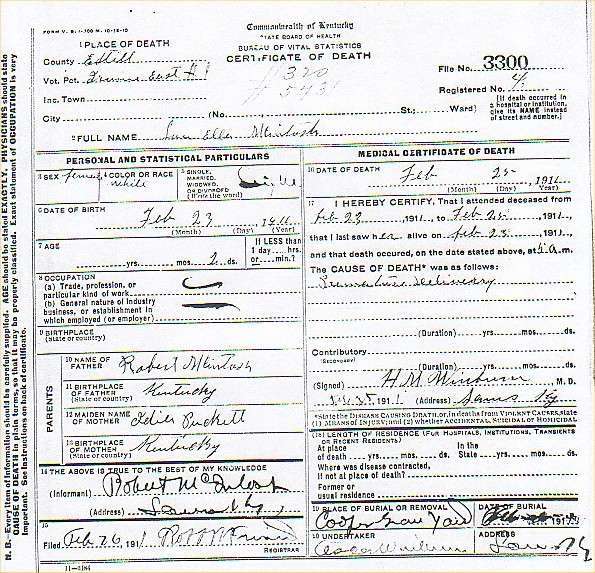 FORM V. S. 1-100 M. 10-12-10
Commonwealth of Kentucky
STATE BOARD OF HEALTH
BUREAU OF VITAL STATISTICS
CERTIFICATE OF DEATH
1 PLACE OF DEATH
County Estill
Vot. Pct. East #1
Inc. Town
City (No. St., Ward)
320
543
File No. 3300
Registered No. 4
[If death occurred in a hospital or institution, give its NAME instead of street and number.]
2 FULL NAME Ellen McIntosh
PERSONAL AND STATISTICAL PARTICULARS
3 SEX female
4 COLOR OR RACE white
5 SINGLE, MARRIED, WIDOWED, OR DIVORCED (Write the word) Single
6 DATE OF BIRTH Feb 23 1911
(Month) (Day) (Year)
7 AGE yrs. mos. 2 ds.
If LESS than 1 day hrs. or min.?
8 OCCUPATION
(a) Trade, profession, or particular kind of work
(b) General nature of industry business, or establishment in which employed (or employer)
9 BIRTHPLACE
(State or country)
PARENTS
10 NAME OF FATHER Robert McIntosh
11 BIRTHPLACE OF FATHER (State or country) Kentucky
12 MAIDEN NAME OF MOTHER Puckett
13 BIRTHPLACE OF MOTHER (State or country) Kentucky
14 THE ABOVE IS TRUE TO THE BEST OF MY KNOWLEDGE
(Informant) Robert McIntosh
(Address) Ky
15
Filed Feb 26, 1911
11-1184
MEDICAL CERTIFICATE OF DEATH
16 DATE OF DEATH Feb 25 1911
(Month) (Day) (Year)
17 I HEREBY CERTIFY, That I attended deceased from
Feb 23, 1911, to Feb 25, 1911,
that I last saw her alive on Feb 23, 1911,
and that death occurred, on the date stated above, at 4 a.m.
The CAUSE OF DEATH* was as follows:
Premature Delivery
(Duration) yrs. mos. ds.
Contributory
(SECONDARY)
(Duration) yrs. mos. ds.
(Signed) H M Winburn M. D.
1911 (Address) Ky
*State the DISEASE CAUSING DEATH, or, in deaths from VIOLENT CAUSES, state (1) MEANS OF INJURY; and (2) whether ACCIDENTAL, SUICIDAL or HOMICIDAL
18 LENGTH OF RESIDENCE (FOR HOSPITALS, INSTITUTIONS, TRANSIENTS OR RECENT RESIDENTS)
At place of death yrs. mos. ds.
In the State yrs. mos. ds.
Where was disease contracted, if not at place of death?
Former or usual residence
19 PLACE OF BURIAL OR REMOVAL
Cooper Grave Yard
DATE OF BURIAL
1911
20 UNDERTAKER
Winburn
ADDRESS
Ky
N. B.—Every item of information should be carefully supplied. AGE should be stated EXACTLY. PHYSICIANS should state CAUSE OF DEATH in plain terms, so that it may be properly classified. Exact statement of OCCUPATION is very important. See instructions on back of certificate.